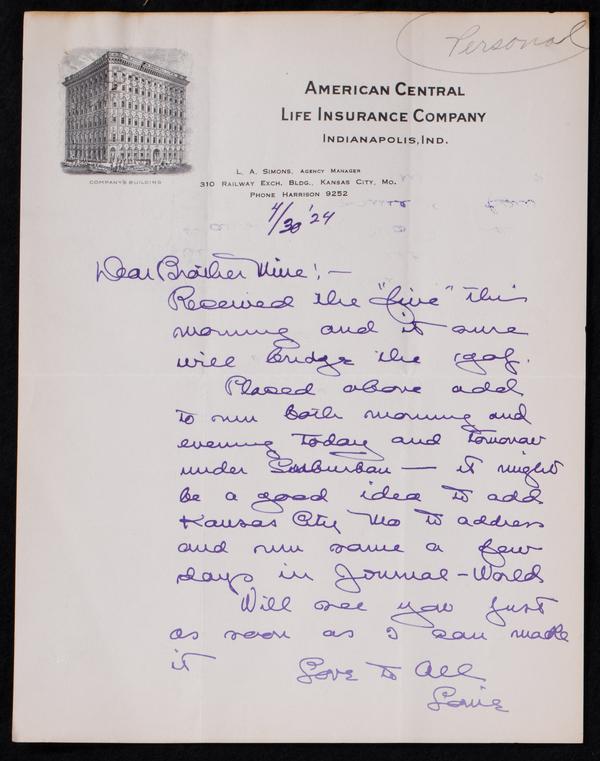 Personal
AMERICAN CENTRAL
LIFE INSURANCE COMPANY
INDIANAPOLIS, IND.
COMPANY'S BUILDING
L. A. SIMONS, AGENCY MANAGER
310 RAILWAY EXCH. BLDG., KANSAS CITY, MO.
PHONE HARRISON 9252
4/30 '24
Dear Brother Mine! -
Received the "five" this
morning and it sure
will bridge the gap.
Placed above add
to run both morning and
evening today and tomorrow
under Suburban - it might
be a good idea to add
Kansas City Mo to address
and run same a few
days in Journal-World
Will see you just
as soon as I can make
it
Love to All
Louie